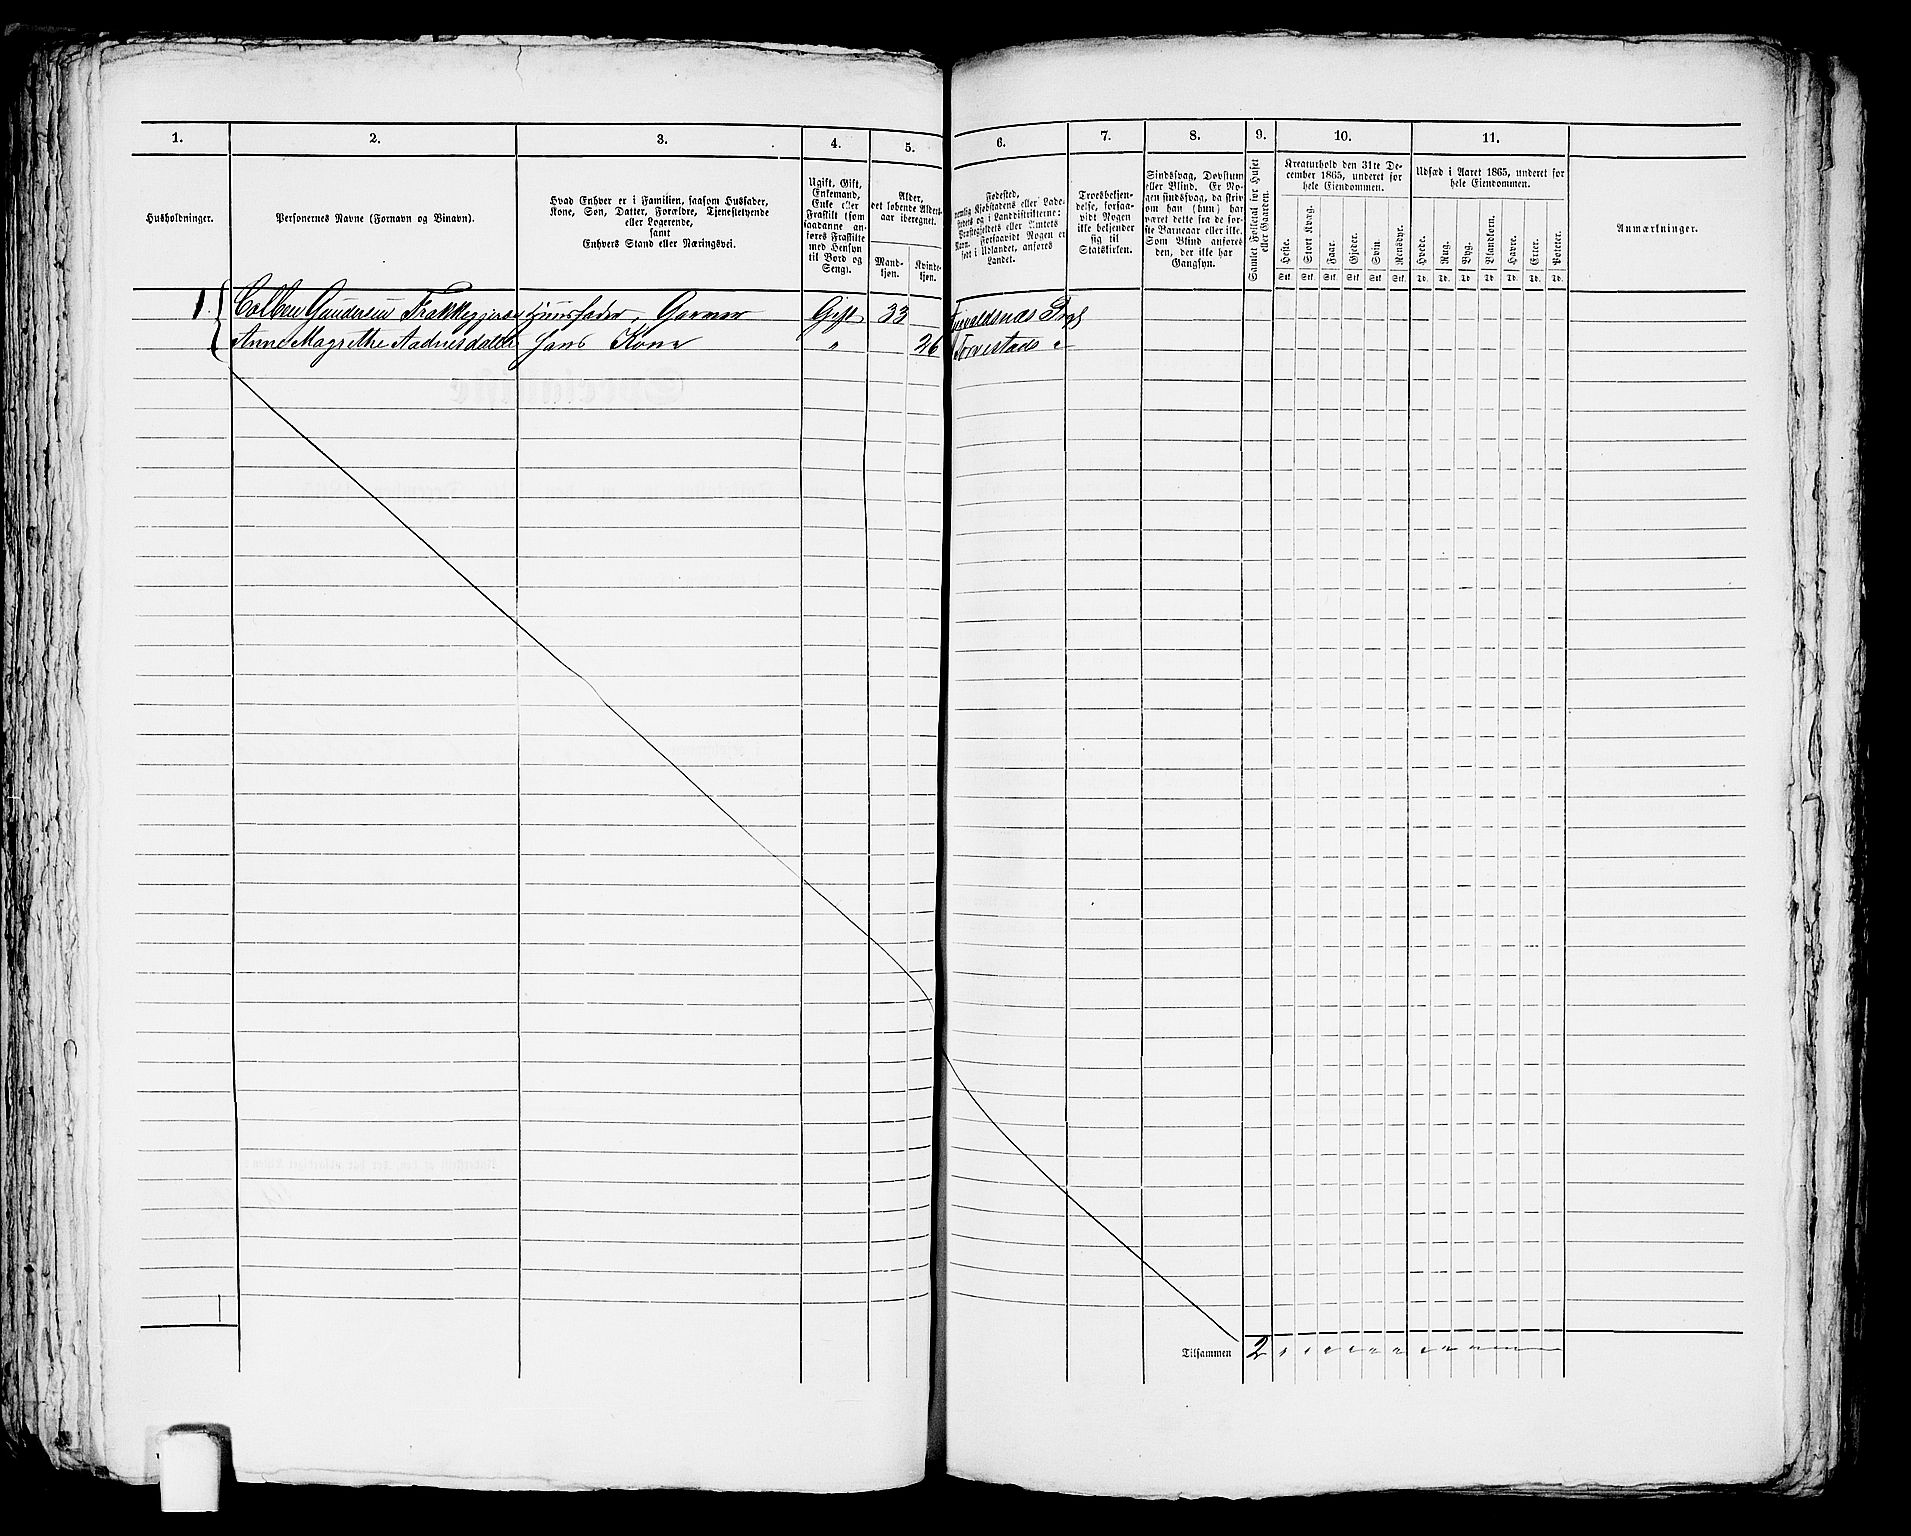 1. 2. 3. 4. 5. 6. 7. 8. 9. 10. 11.
Husholdninger.
Personernes Navne (Fornavn og Binavn).
Hvad Enhver er i Familien, saasom Husfader,
Kone, Søn, Datter, Forældre, Tjenestetyende
eller Logerende,
samt
Enhvers Stand eller Næringsvei.
Ugift, Gift,
Enkemand,
Enke eller
Fraskilt (som
saadanne an-
føres Fraskilte
med Hensyn
til Bord og
Seng).
Alder,
det løbende Alders-
aar iberegnet.
Mand-
kjøn.
Kvinde-
kjøn.
Fødested,
nemlig Kjøbstadens eller Lade-
stedets og i Landdistrikterne:
Præstegjeldets eller Amtets
Navn. Forsaavidt Nogen er
født i Udlandet, anføres
Landet.
Troesbekjen-
delse, forsaa-
vidt Nogen
ikke bekjender
sig til
Statskirken.
Sindssvag, Døvstum
eller Blind. Er No-
gen sindssvag, da skriv
om han (hun) har
været dette fra de før-
ste Barneaar eller ikke.
Som Blind anføres
den, der ikke har
Gangsyn.
Samlet Folketal for Huset
eller Gaarden.
Kreaturhold den 31te De-
cember 1865, underet for
hele Eiendommen.
Heste. Stort Kvæg. Faar. Gjeder. Svin. Rensdyr.
Stk. Stk. Stk. Stk. Stk. Stk.
Udsæd i Aaret 1865, underet for
hele Eiendommen.
Hvede. Rug. Byg. Blandkorn. Havre. Erter. Poteter.
Td. Td. Td. Td. Td. Td. Td.
Anmærkninger.
1. Colben Gundersen Husfader, Garver Gift 33
Anne Magrethe Aadnesdatter Hans Kone " 26 Torvestads
1
Tilsammen 2